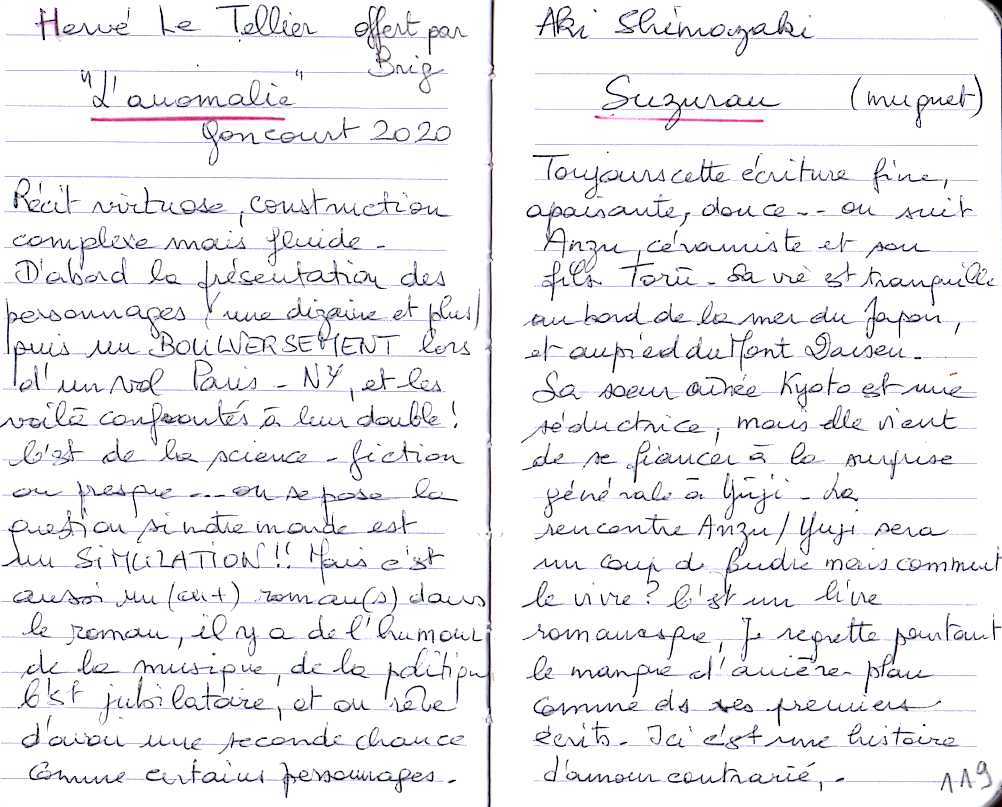 Hervé Le Tellier offert par
Brig
"L'anomalie"
Goncourt 2020
Récit virtuose, construction
complexe mais fluide -
D'abord la présentation des
personnages (une dizaine et plus)
puis un BOULVERSEMENT lors
d'un vol Paris - NY, et les
voilà confrontés à leur double !
C'est de la science-fiction
ou presque ... on se pose la
question si notre monde est
un SIMULATION !! Mais c'est
aussi un (ou +) roman(s) dans
le roman, il y a de l'humour
de la musique, de la politique
C'est jubilatoire, et on rêve
d'avoir une seconde chance
comme certains personnages.
Aki Shimazaki
Suzuran (muguet)
Toujours cette écriture fine,
apaisante, douce -- on suit
Anzu, céramiste et son
fils Torū - Sa vie est tranquille
au bord de la mer du Japon,
et au pied du Mont Daisen.
Sa soeur aînée Kyoto est une
séductrice, mais elle vient
de se fiancer à la surprise
générale à Yūji - La
rencontre Anzu/Yuji sera
un coup d foudre mais comment
le vivre ? C'est un livre
romanesque, Je regrette pourtant
le manque d'arrière-plan
comme ds ses premiers
écrits - Ici c'est une histoire
d'amour contrarié, -
119